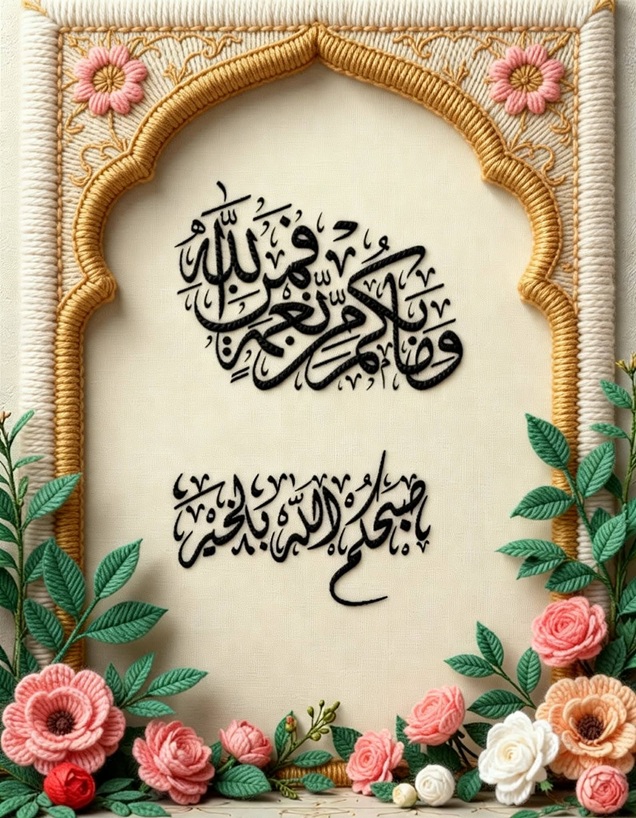 وَمَا بِكُم مِّن نِّعْمَةٍ فَمِنَ اللَّهِ
صبحكم الله بالخير